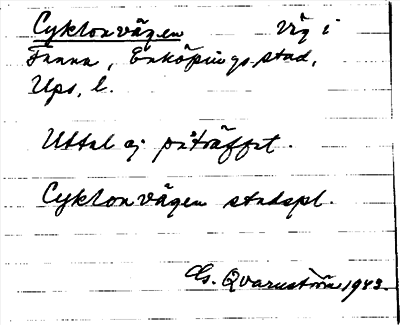 Cyklonvägen Väg i
Fanna, Enköpings stad,
Ups. l.
Uttal ej påträffat.
Cyklonvägen stadspl.
Cs. Qvarnström 1943.